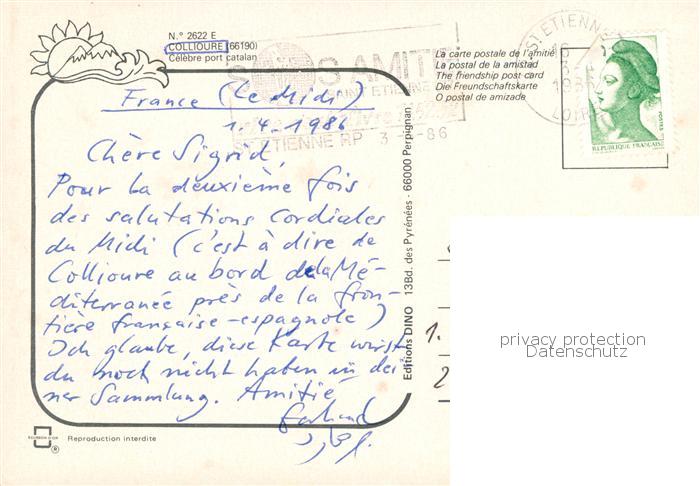 N.° 2622 E
COLLIOURE (66190)
Célèbre port catalan
La carte postale de l'amitié
La postal de la amistad
The friendship post card
Die Freundschaftskarte
O postal de amizade
S.O.S AMITIÉ
SAINT ETIENNE
ST ETIENNE RP 3 - - 86
ST ETIENNE
LOIRE
POSTES
REPUBLIQUE FRANÇAISE
France (Le Midi)
1.4.1986
Chère Sigrid,
Pour la deuxième fois
des salutations cordiales
du Midi (c'est à dire de
Collioure au bord de la Mé-
diterranée près de la fron-
tière française-espagnole)
Ich glaube, diese Karte wirst
du noch nicht haben in dei
ner Sammlung. Amitié
Gerhard
Editions DINO 13Bd. des Pyrénées - 66000 Perpignan
1.
2
privacy protection
Datenschutz
Reproduction interdite